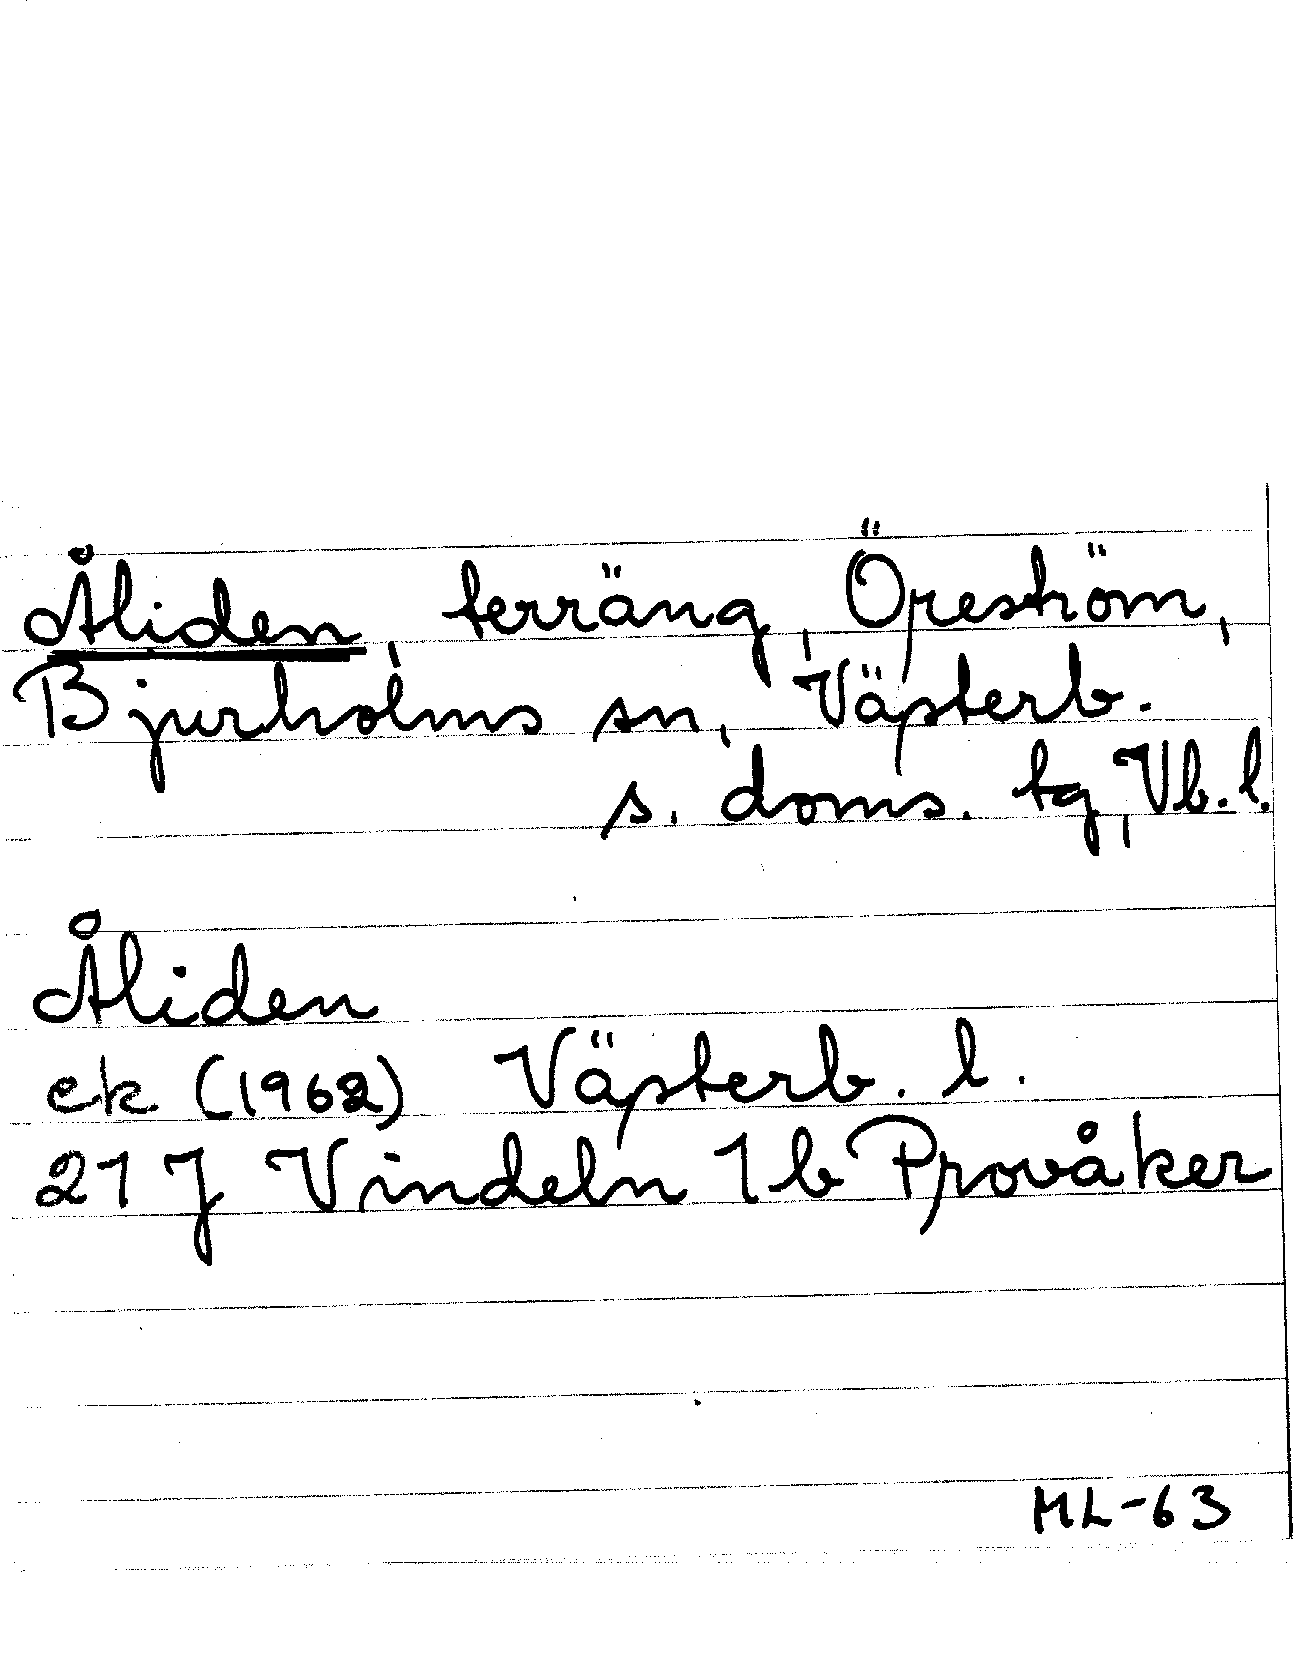 Åliden, terräng, Öreström,
Bjurholms sn, Västerb.
s. doms. tg, Vb. l.
Åliden
ek (1962) Västerb. l.
21 J Vindeln 1b Provåker
ML-63